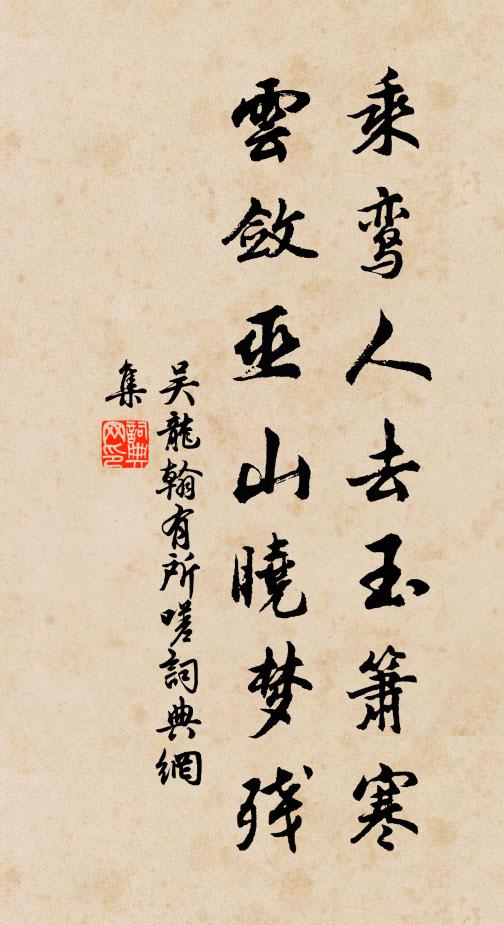 乘鸾人去玉箫寒
雲斂巫山曉梦残
吴龍翰有所嗟詞典網
集
詞典网印